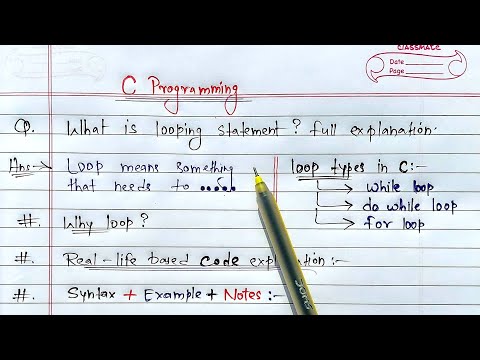 CLASSMATE
Date
Page
C Programming
Q. What is looping statement? full explanation.
Ans→ Loop means something
that needs to .....
loop types in C:-
while loop
do while loop
for loop
#. Why loop?
#. Real-life based code explanation:-
#. Syntax + Example + Notes:-